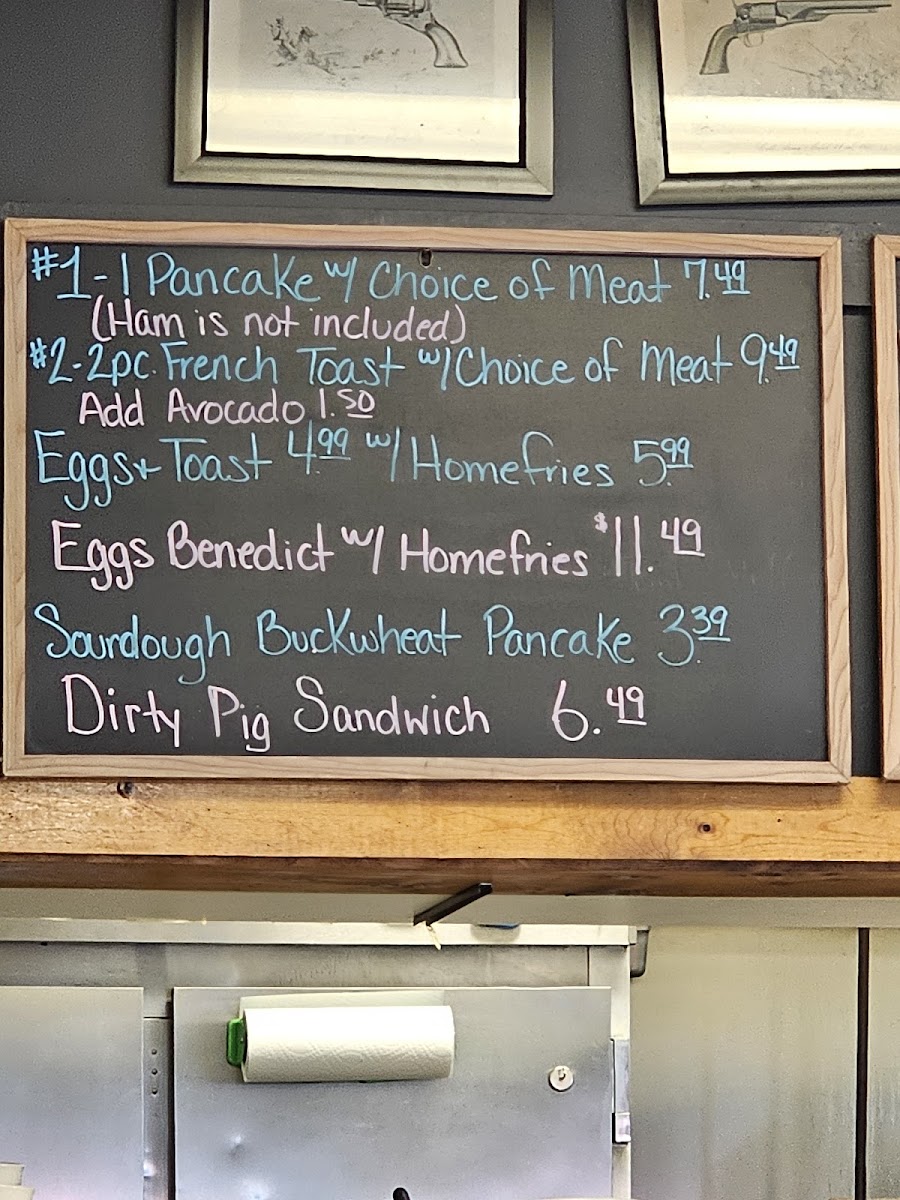 #1-1 Pancake w/ Choice of Meat 7.49
(Ham is not included)
#2-2pc. French Toast w/ Choice of Meat 9.49
Add Avocado 1.50
Eggs & Toast 4.99 w/ Homefries 5.99
Eggs Benedict w/ Homefries $11.49
Sourdough Buckwheat Pancake 3.39
Dirty Pig Sandwich 6.49